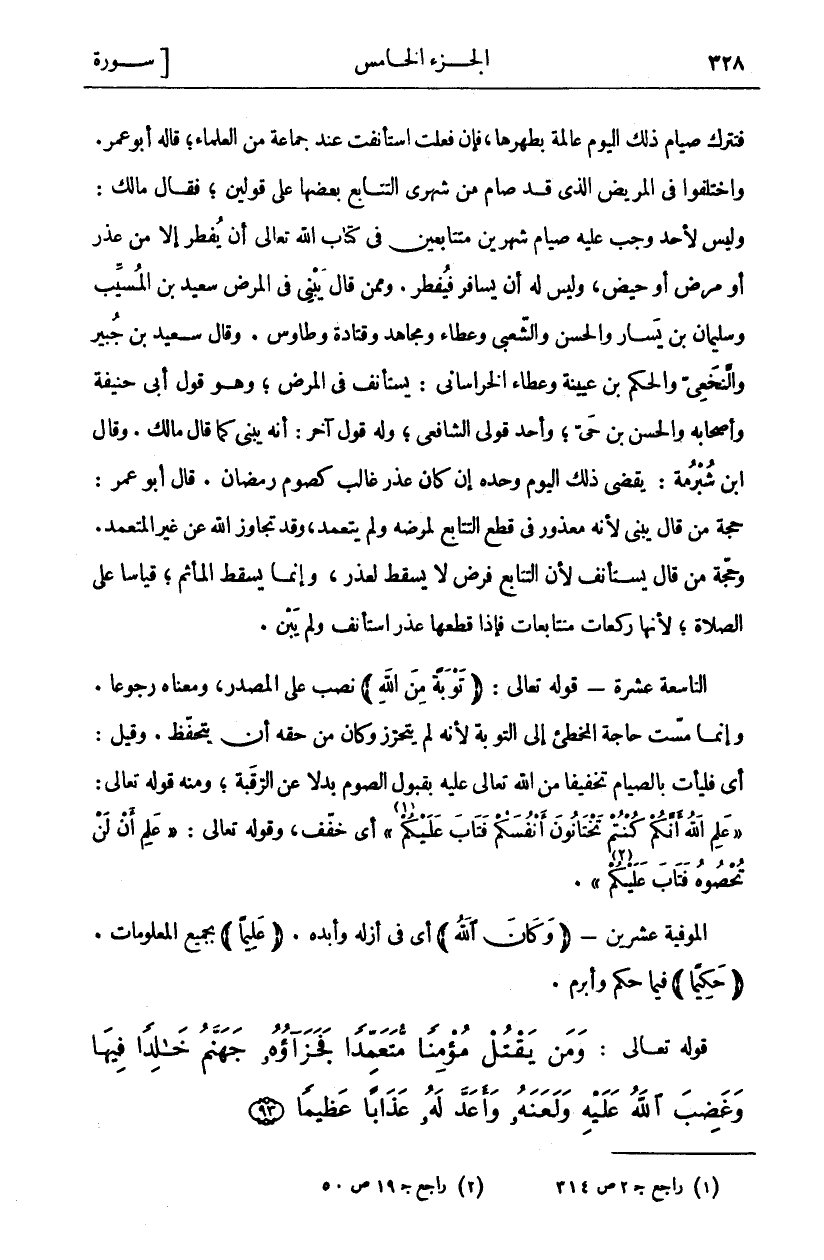 ٣٢٨ الجـــزء الخـامس [ ســـورة
فتترك صيام ذلك اليوم عالمة بطهرها، فإن فعلت استأنفت عند جماعة من العلماء؛ قاله أبو عمر.
واختلفوا فى المريض الذى قـد صام من شهرى التتـابع بعضها على قولين ؛ فقـال مالك :
وليس لأحد وجب عليه صيام شهرين متتابعين فى كتاب الله تعالى أن يُفطر إلا من عذر
أو مرض أو حيض، وليس له أن يسافر فيُفطر . وممن قال يَبْنِى فى المرض سعيد بن المُسيِّب
وسليمان بن يَسـار والحسن والشّعبى وعطاء ومجاهد وقتادة وطاوس . وقال سـعيد بن جُبير
والنَّخَعِىّ والحكم بن عيينة وعطاء الخراسانى : يستأنف فى المرض ؛ وهـو قول أبى حنيفة
وأصحابه والحسن بن حَىّ ؛ وأحد قولى الشافعى ؛ وله قول آخر : أنه يبنى كما قال مالك . وقال
ابن شُبْرُمة : يقضى ذلك اليوم وحده إن كان عذر غالب كصوم رمضان . قال أبو عمر :
حجة من قال يبنى لأنه معذور فى قطع التتابع لمرضه ولم يتعمد، وقد تجاوز الله عن غير المتعمد.
وحجّة من قال يسـتأنف لأن التتابع فرض لا يسقط لعذر ، وإنمـا يسقط المأثم ؛ قياسا على
الصلاة ؛ لأنها ركعات متتابعات فإذا قطعها عذر استأنف ولم يَبْن .
التاسعة عشرة – قوله تعالى : ﴿ تَوْبَةً مِنَ اللهِ ﴾ نصب على المصدر، ومعناه رجوعا .
وإنمـا مسّت حاجة المخطئ إلى التوبة لأنه لم يتحرّز وكان من حقه أن يتحفّظ . وقيل :
أى فليأت بالصيام تخفيفا من الله تعالى عليه بقبول الصوم بدلا عن الرَّقَبة ؛ ومنه قوله تعالى:
« عَلِمَ اللهُ أَنَّكُمْ كُنْتُمْ تَخْتَانُونَ أَنْفُسَكُمْ فَتَابَ عَلَيْكُمْ(١) » أى خفّف، وقوله تعالى : « عَلِمَ أَنْ لَنْ
تُحْصُوهُ فَتَابَ عَلَيْكُمْ(٢) » .
الموفية عشرين – ﴿ وَكَانَ ٱللهُ ﴾ أى فى أزله وأبده . ﴿ عَلِيمًا ﴾ بجميع المعلومات .
﴿ حَكِيمًا ﴾ فيما حكم وأبرم .
قوله تعـالى : وَمَن يَقْتُلْ مُؤْمِنًا مُّتَعَمِّدًا فَجَزَآؤُهُۥ جَهَنَّمُ خَٰلِدًا فِيهَا
وَغَضِبَ ٱللَّهُ عَلَيْهِ وَلَعَنَهُۥ وَأَعَدَّ لَهُۥ عَذَابًا عَظِيمًا ﴿٩٣﴾
(١) راجع جـ ٢ ص ٣١٤ (٢) راجع جـ ١٩ ص ٥٠